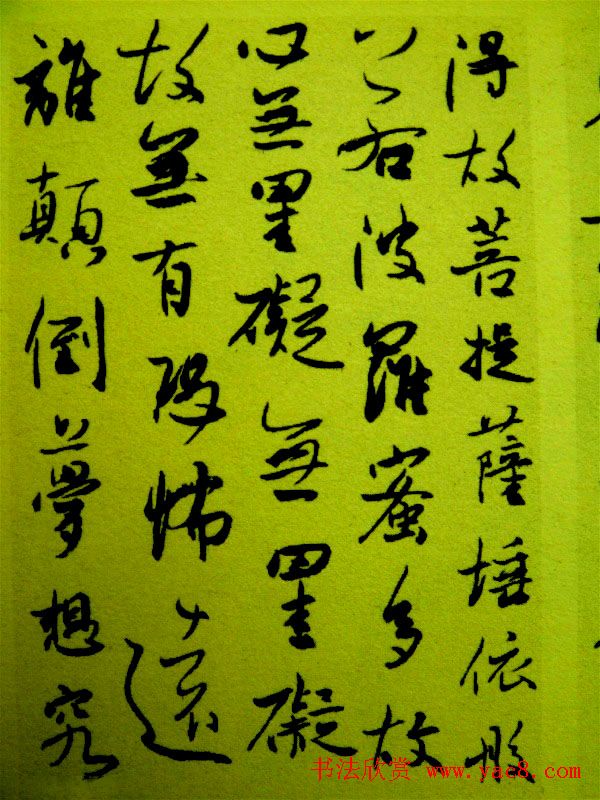 得故菩提薩埵依般
若波羅蜜多故
心無罣礙無罣礙
故無有恐怖遠
離顛倒夢想究
书法欣赏 www.yac8.com